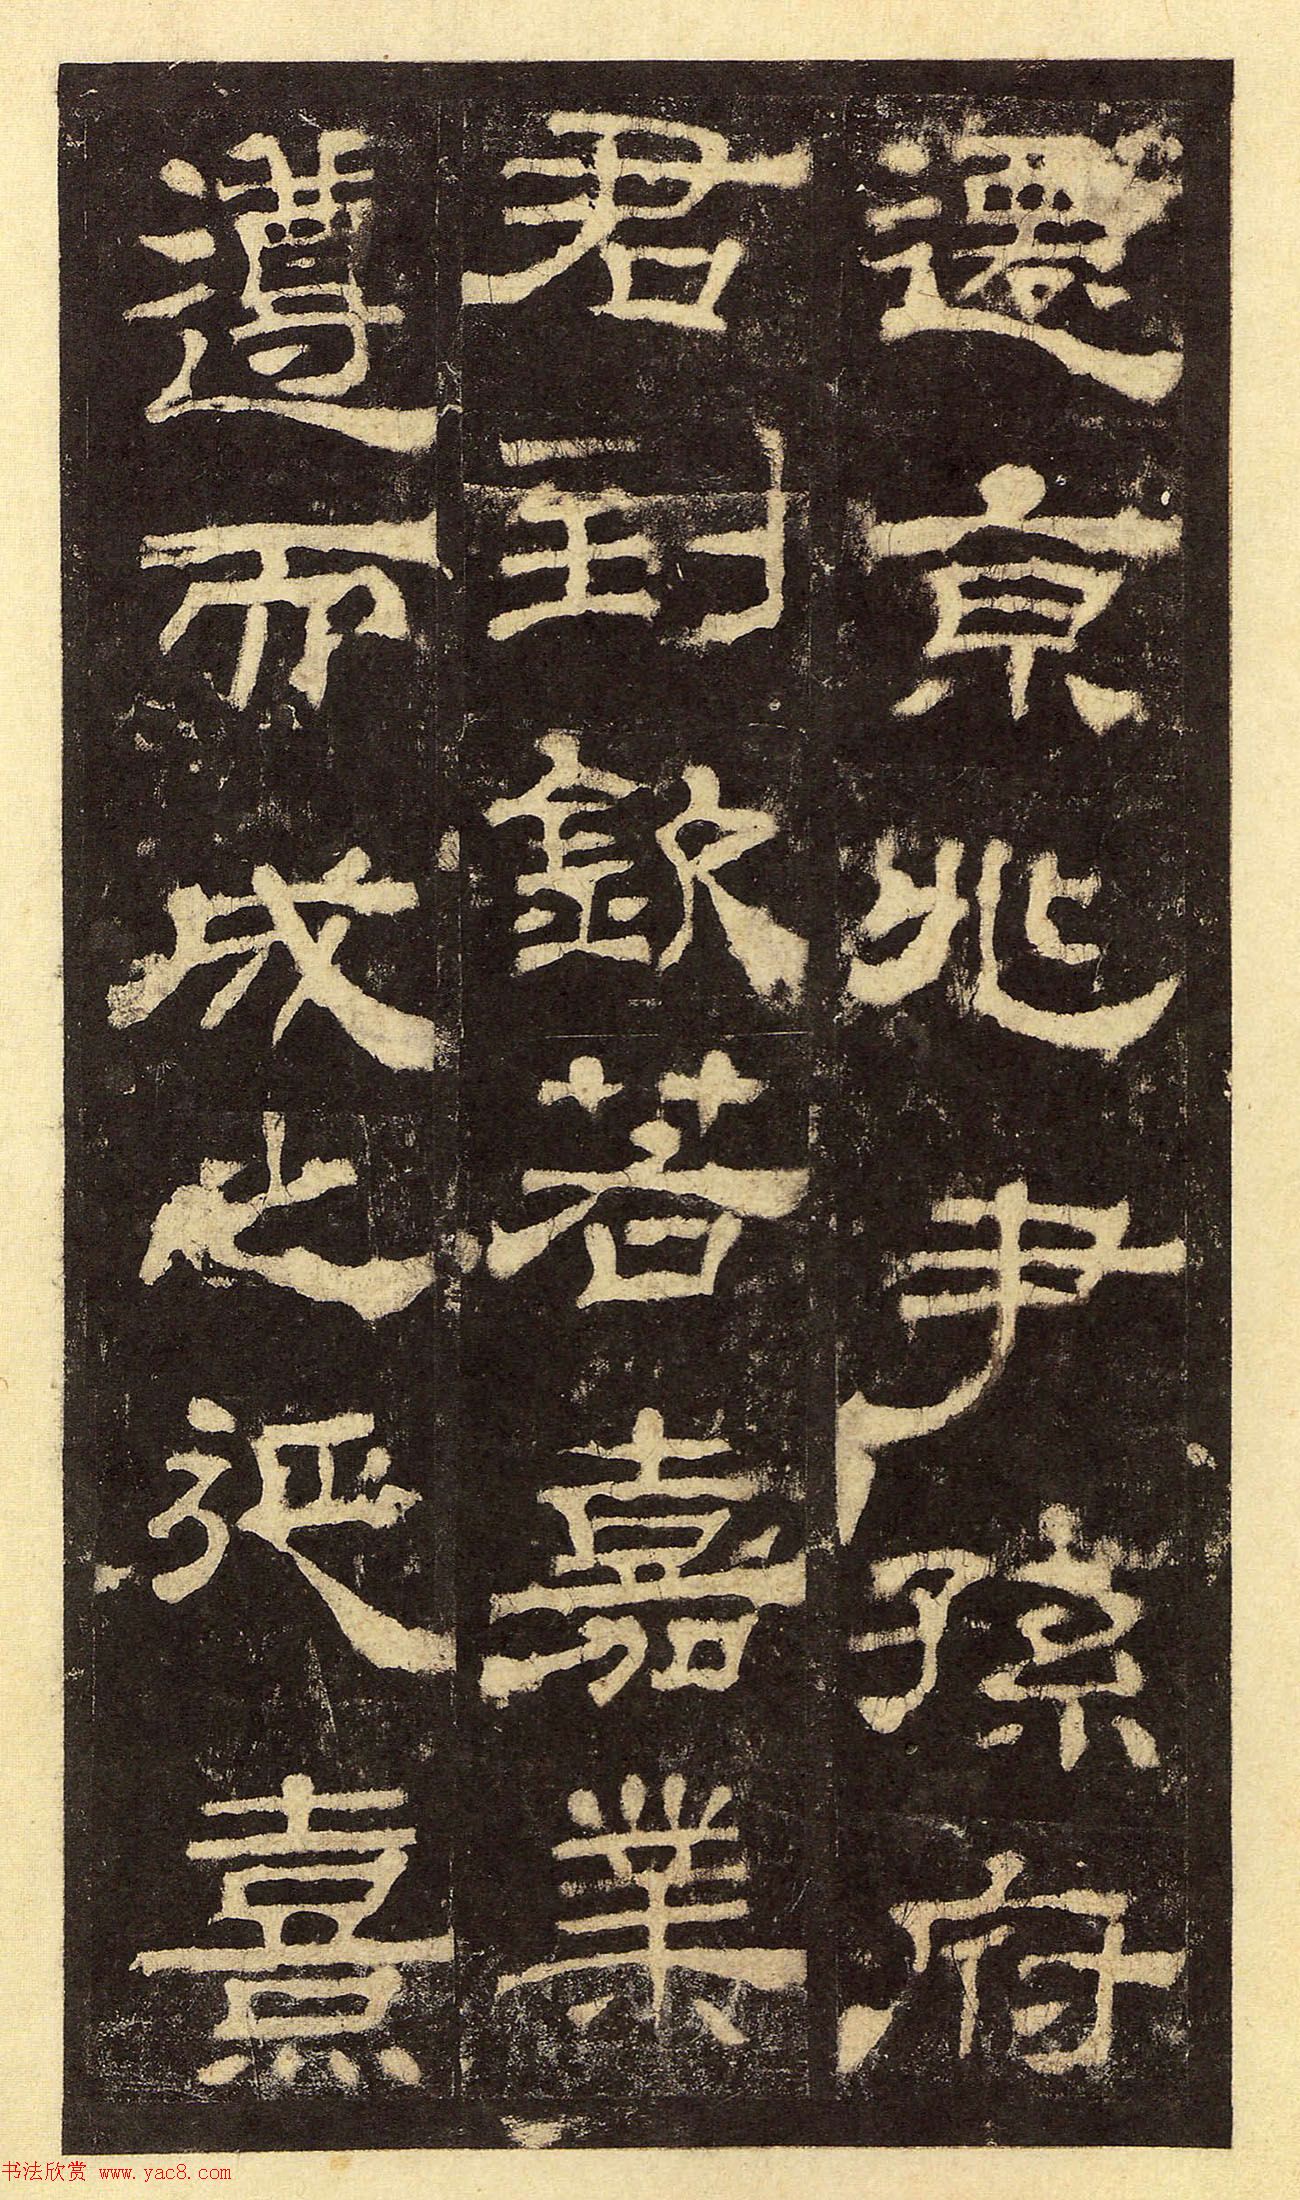 遷京兆尹孫府
君到欽若嘉業
遵而成之延熹
书法欣赏 www.yac8.com